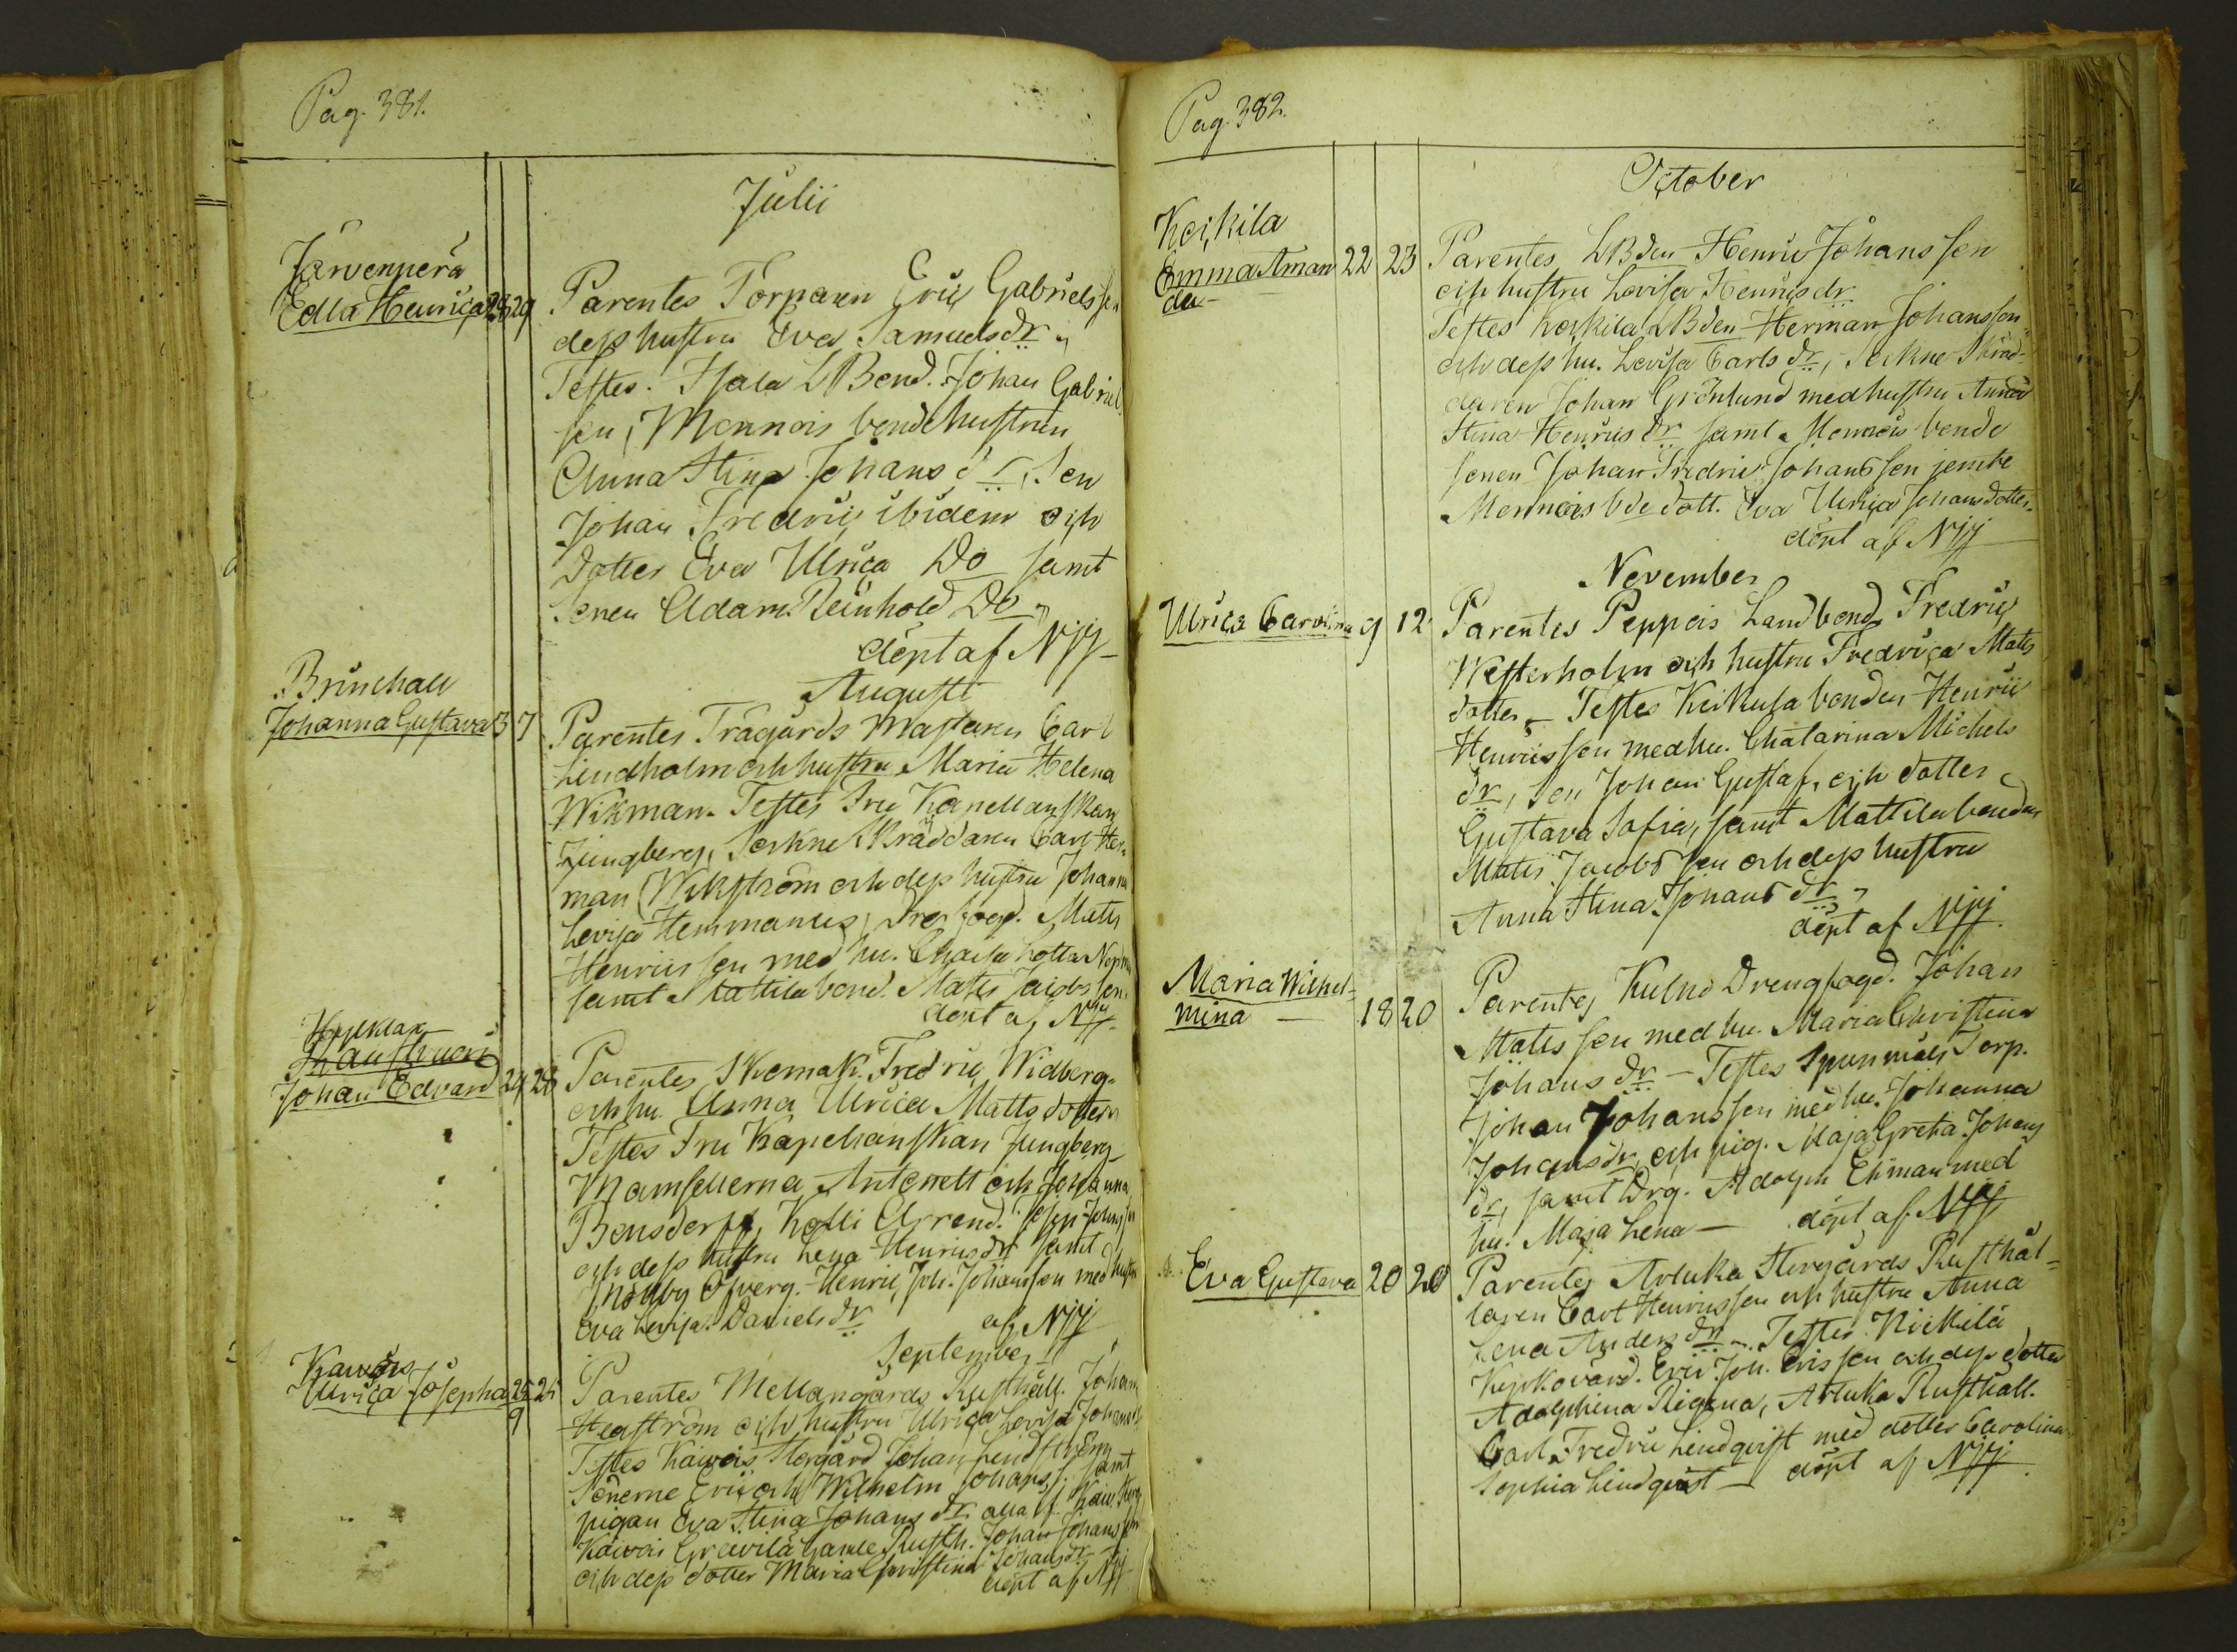 Pag. 381.
Julii
Järvenperä
Edla Henrica 28 29 Parentes Torparen Eric Gabrielsson
dess hustru Eva Samuelsdr
Testes. Isala LBond. Johan Gabriels
son, Mennois bondehustrun
Anna Stina Johansdr, Son
Johan Fredric ibidem och
dotter Eva Ulrica Do samt
sonen Adam Reinhold Do
döpt af NJJ
Augusti
Johanna Gustava 3 7 Parentes Trägårds Mästaren Carl
Lindholm och hustru Maria Helena
Wikman. Testes Fru Kapellanskan
Ljungberg, Sockne Skräddaren Carl Her-
man Wikström och dess hustru Johanna
Lovisa Hemmanus, Mats
Henricsson med hu. Charlotta
samt Mattila bond. Mats Jacobsson
döpt af NJJ
Johan Edvard 24 28 Parentes Skomak. Fredric Widberg
och hu. Anna Ulrica Mattsdotter
Testes Fru Kapellanskan Jungberg
Mamsellerna Antonett och Johanna
Bonsdorff, Kolli Arrend.
och dess hustru Lena Henricsdr samt
Henric Joh. Johansson med hustru
Eva Lovisa Danielsdr af NJJ
September
Kawois
Ulrica Josepha 25 25 Parentes Mellangårds Rusthåll. Johan
9 Hedström och hustru Ulrica Lovisa Johansdr
Testes Kawois Storgård Johan Lindström
Sönerne Eric och Wilhelm Johanss. samt
pigan Eva Stina Johansdr alla f. Kaw. Storg
Kawois Grävilä gamle Rusth. Johan Johansson
och dess dotter Maria Christina Johansdr
döpt af NJJ
Pag. 382.
October
Koskila
Emma Aman 22 23 Parentes LBden Henric Johansson
da och hustru Lovisa Henricsdr
Testes Koskila LBden Herman Johansson
och dess hu. Lovisa Carlsdr, Sockne Skräd-
daren Johan Grönlund med hustru Anna
Stina Henricsdr samt Mennois bonde
sonen Johan Fredric Johansson jemte
Mennois bde dott. Eva Ulrica Johansdotter.
döpt af NJJ
November
Ulrica Carolina 9 12 Parentes Peppois Landbond Fredric
Westerholm och hustru Fredrica Mats
dotter. Testes Keikula bonden Henric
Henricsson med hu. Chatarina Michels
dr, son Johan Gustaf, och dotter
Gustava Sofia, samt Mattila bonden
Mats Jacobsson och dess hustru
Anna Stina Johansdr
döpt af NJJ
Maria Wilhel-
mina 18 20 Parentes Kulno Drengfogd. Johan
Matsson med hu. Maria Christina
Johansdr - Testes Torp.
Johan Johansson med hu. Johanna
Johansdr, och pig. Maja Greta Johans
dr, samt Drg. Adolph Ekman med
hu. Maja Lena - döpt af NJJ
Eva Gustava 20 20 Parentes Arluka Storgårds Rusthål-
laren Carl Henricsson och hustru Anna
Lena Andersdr - Testes Nickilä
Kyrkovärd. Eric Joh. Ericsson och dess dotter
Adolphina Regina, Arluka Rusthåll.
Carl Fredric Lindqvist med dotter Carolina
Sophia Lindqvist - döpt af NJJ